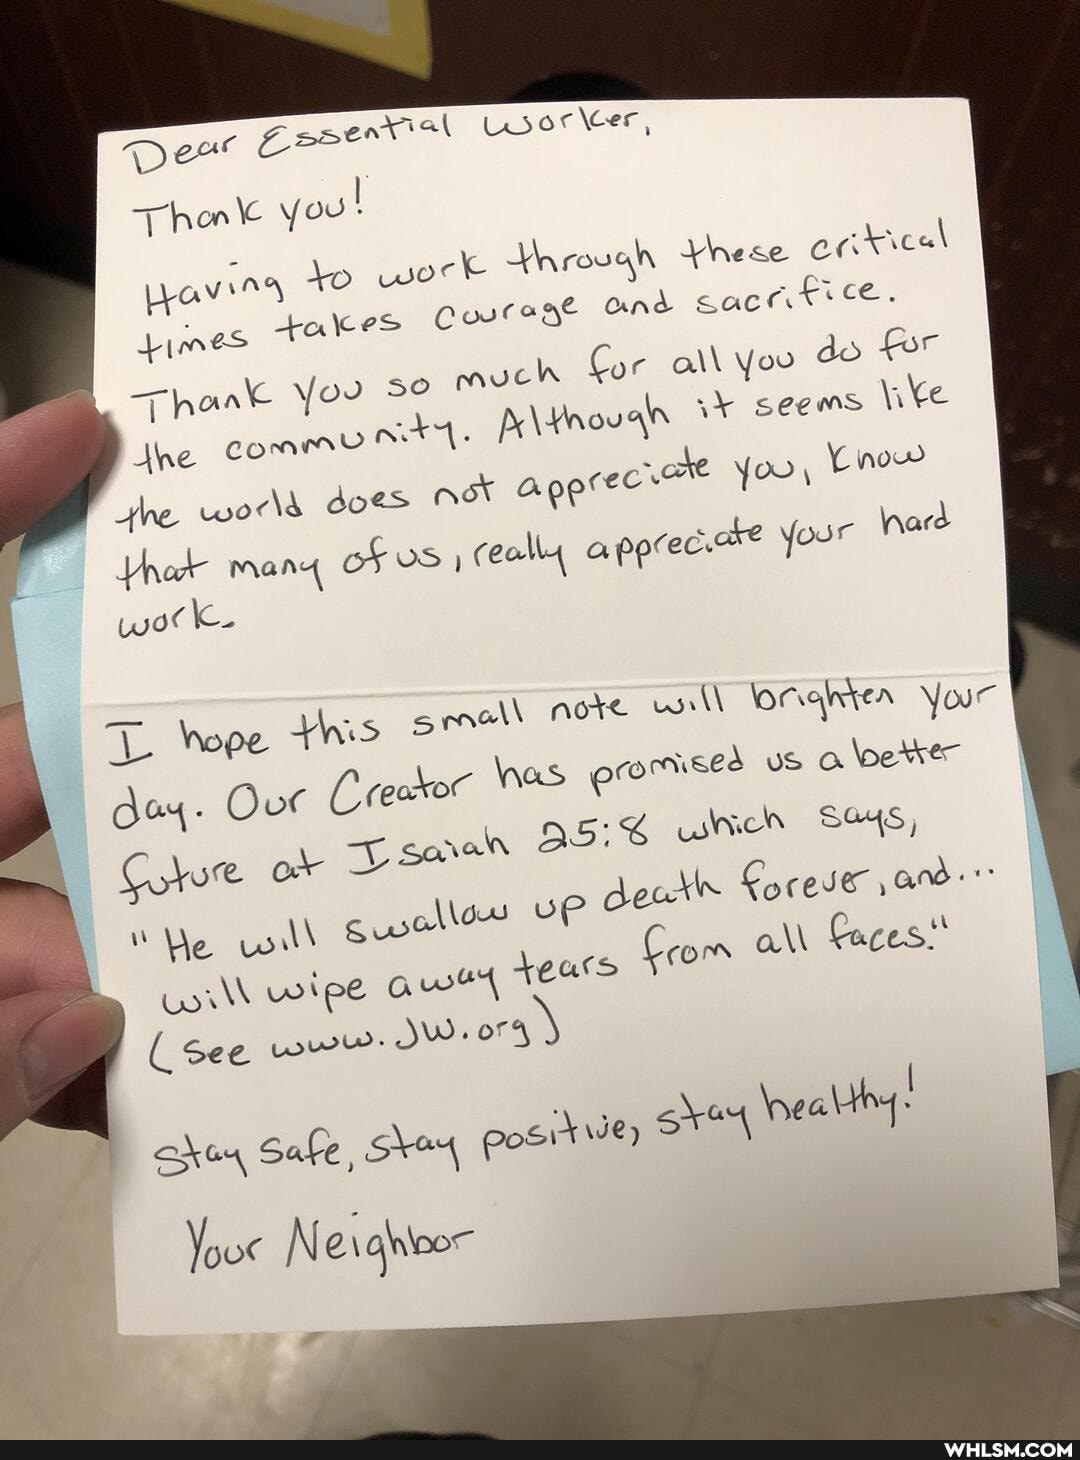 Dear Essential Worker,
Thank you!
Having to work through these critical
times takes courage and sacrifice.
Thank you so much for all you do for
the community. Although it seems like
the world does not appreciate you, know
that many of us, really appreciate your hard
work.
I hope this small note will brighten your
day. Our Creator has promised us a better
future at Isaiah 25:8 which says,
"He will swallow up death forever, and...
will wipe away tears from all faces."
(see www.JW.org)
Stay safe, stay positive, stay healthy!
Your Neighbor
WHLSM.COM